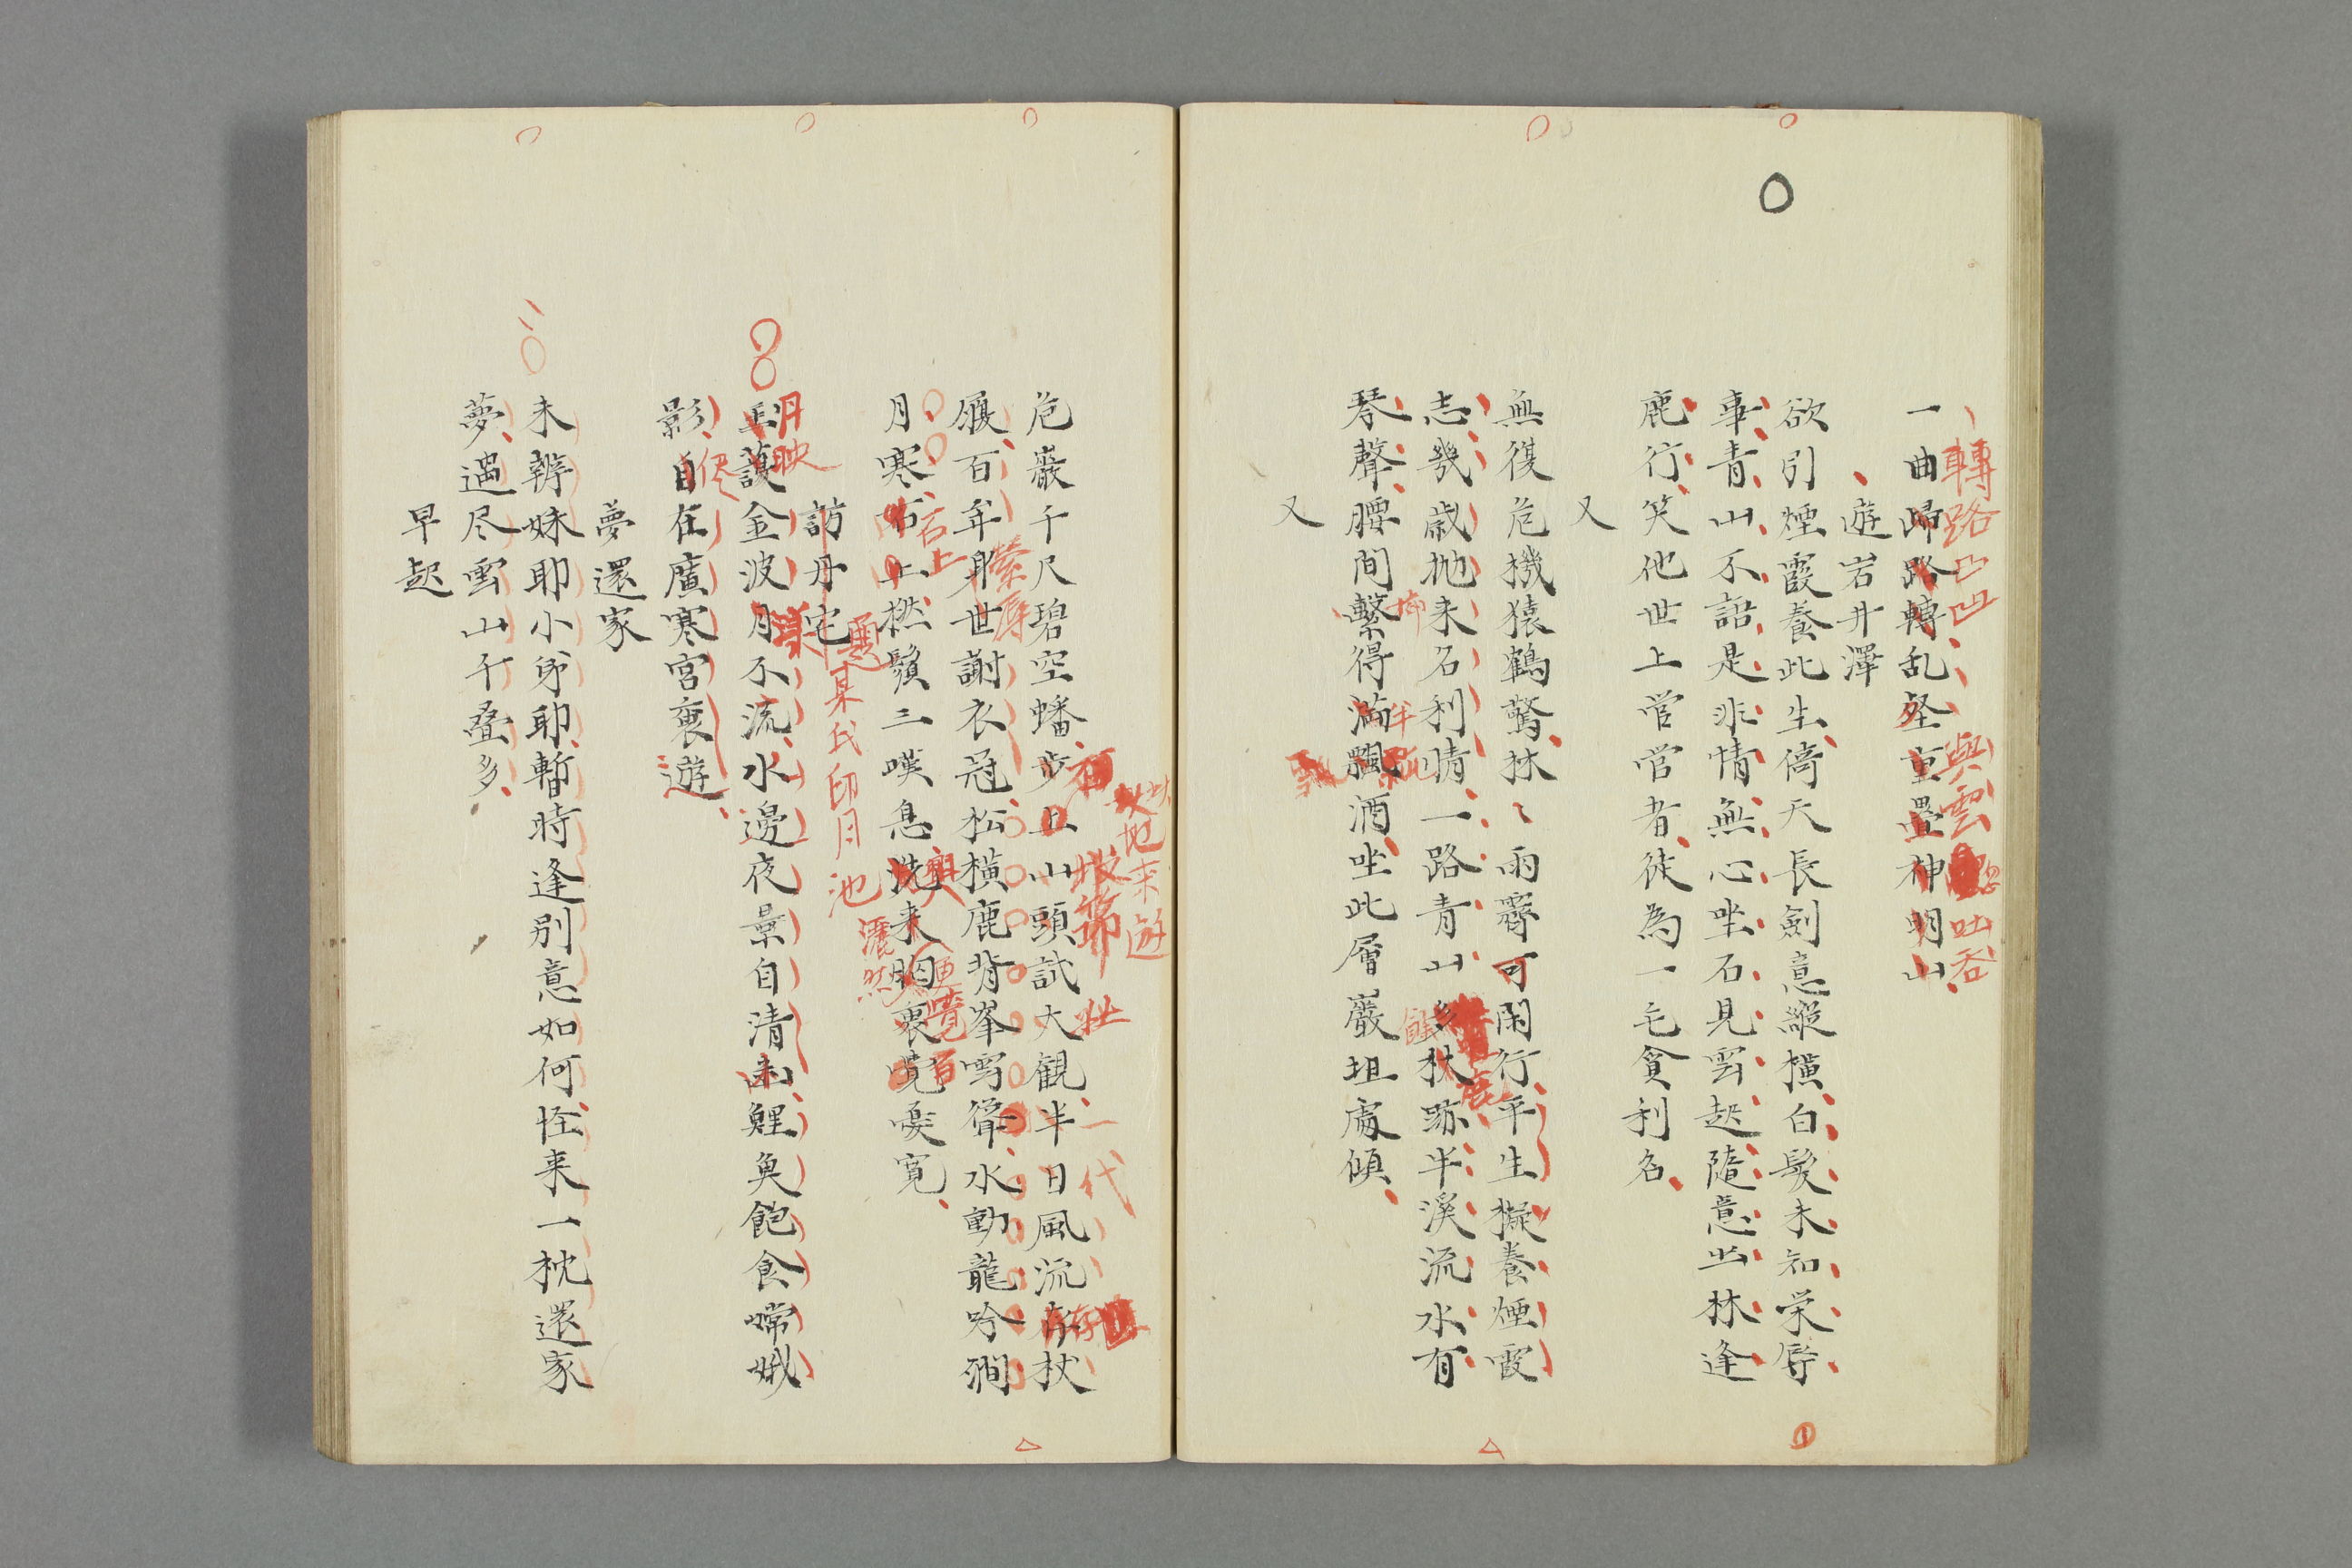 一曲歸路轉乱壑重疊神明山
轉路凸凹
與雲
吐吞
遊岩井澤
欲引煙霞養此生倚天長劍意縱橫白髮未知栄辱
事青山不語是非情無心坐石見雲起隨意出林逢
鹿行笑他世上営営者徒為一毛貪利名
又
無復危機猿鶴驚林〻雨霽可閑行平生擬養煙霞
志幾歳抛来名利晴一路青山多杖跡半溪流水有
琴聲腰間繫得滿瓢酒坐此層巖坦處傾
半
又
危巖千尺碧空蟠步上山頭試大観半日風流存杖
地来遊
壯
一代
存
履百年身世謝衣冠松横鹿背峯雪聳水動龍吟澗
月寒石上撚鬚三嘆息洗来胸裏覚愛寛
石上
興
洒然
更覚
訪丹宅
題某氏印月池
月映
護金波月不流水邊夜景自清幽鯉魚飽食嫦娥
影自在廣寒宮裏遊
夢還家
未辨妹耶小弟耶暫時逢別意如何怪来一枕還家
夢遇尽雲山千叠多
早起